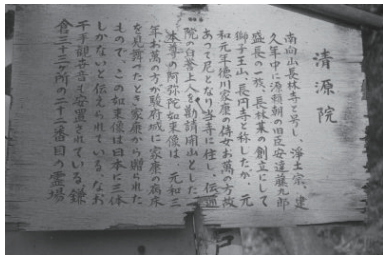 清源院
南向山長林寺と号し、浄土宗、建
久年中に源頼朝の旧臣安達藤九郎
盛長の一族、長林某の創立にして
獅子王山、長円寺と称したが、元
和元年徳川家康の侍女お萬の方故
あって尼となり当寺に住し、伝通
院の白誉上人を勧請開山とした。
本尊の阿弥陀如来像は、元和三
年お萬の方が駿府城に家康の病床
を見舞ったとき家康から贈られた
もので、この如来像は日本に三体
しかないと伝えられている。なお
千手観世音も安置されている鎌
倉三十三ヶ所の二十二番目の霊場